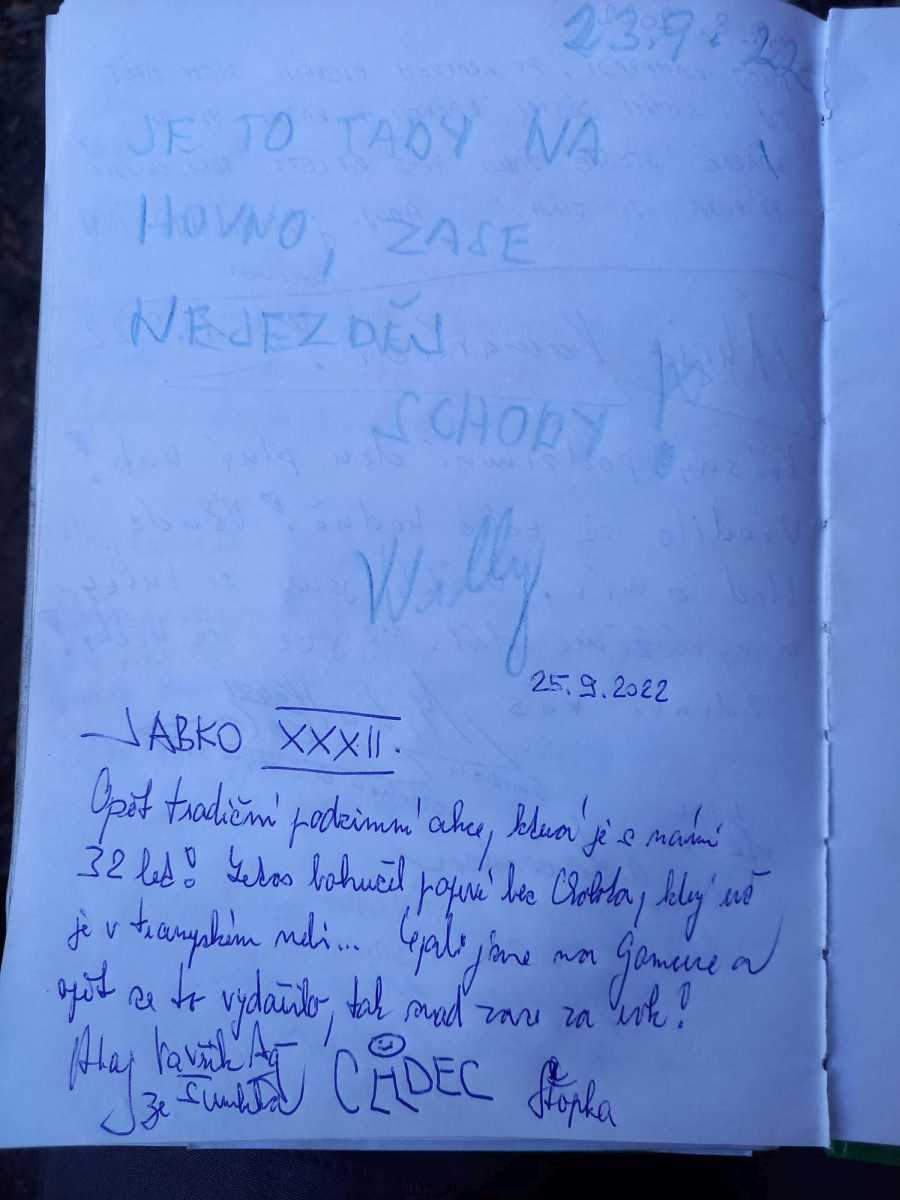 23.9. 22
JE TO TADY NA
HOVNO, ZASE
NEJEZDĚJ
SCHODY!
Willy
25.9.2022
JABKO XXXII.
Opět tradiční podzimní akce, která je s námi
32 let! Letos bohužel poprvé bez, který už
je v trampském nebi... Spali jsme na Gomeře a
opět se to vydařilo, tak snad zase za rok!
Ahoj Vavřík
ze CHDEC Štopka